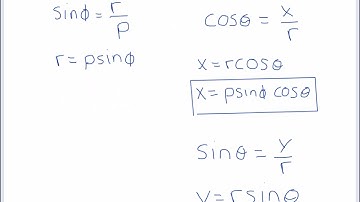 sinϕ = r/ρ
r = ρsinϕ
cosθ = x/r
x = rcosθ
x = ρsinϕ cosθ
sinθ = y/r
y = rsinθ